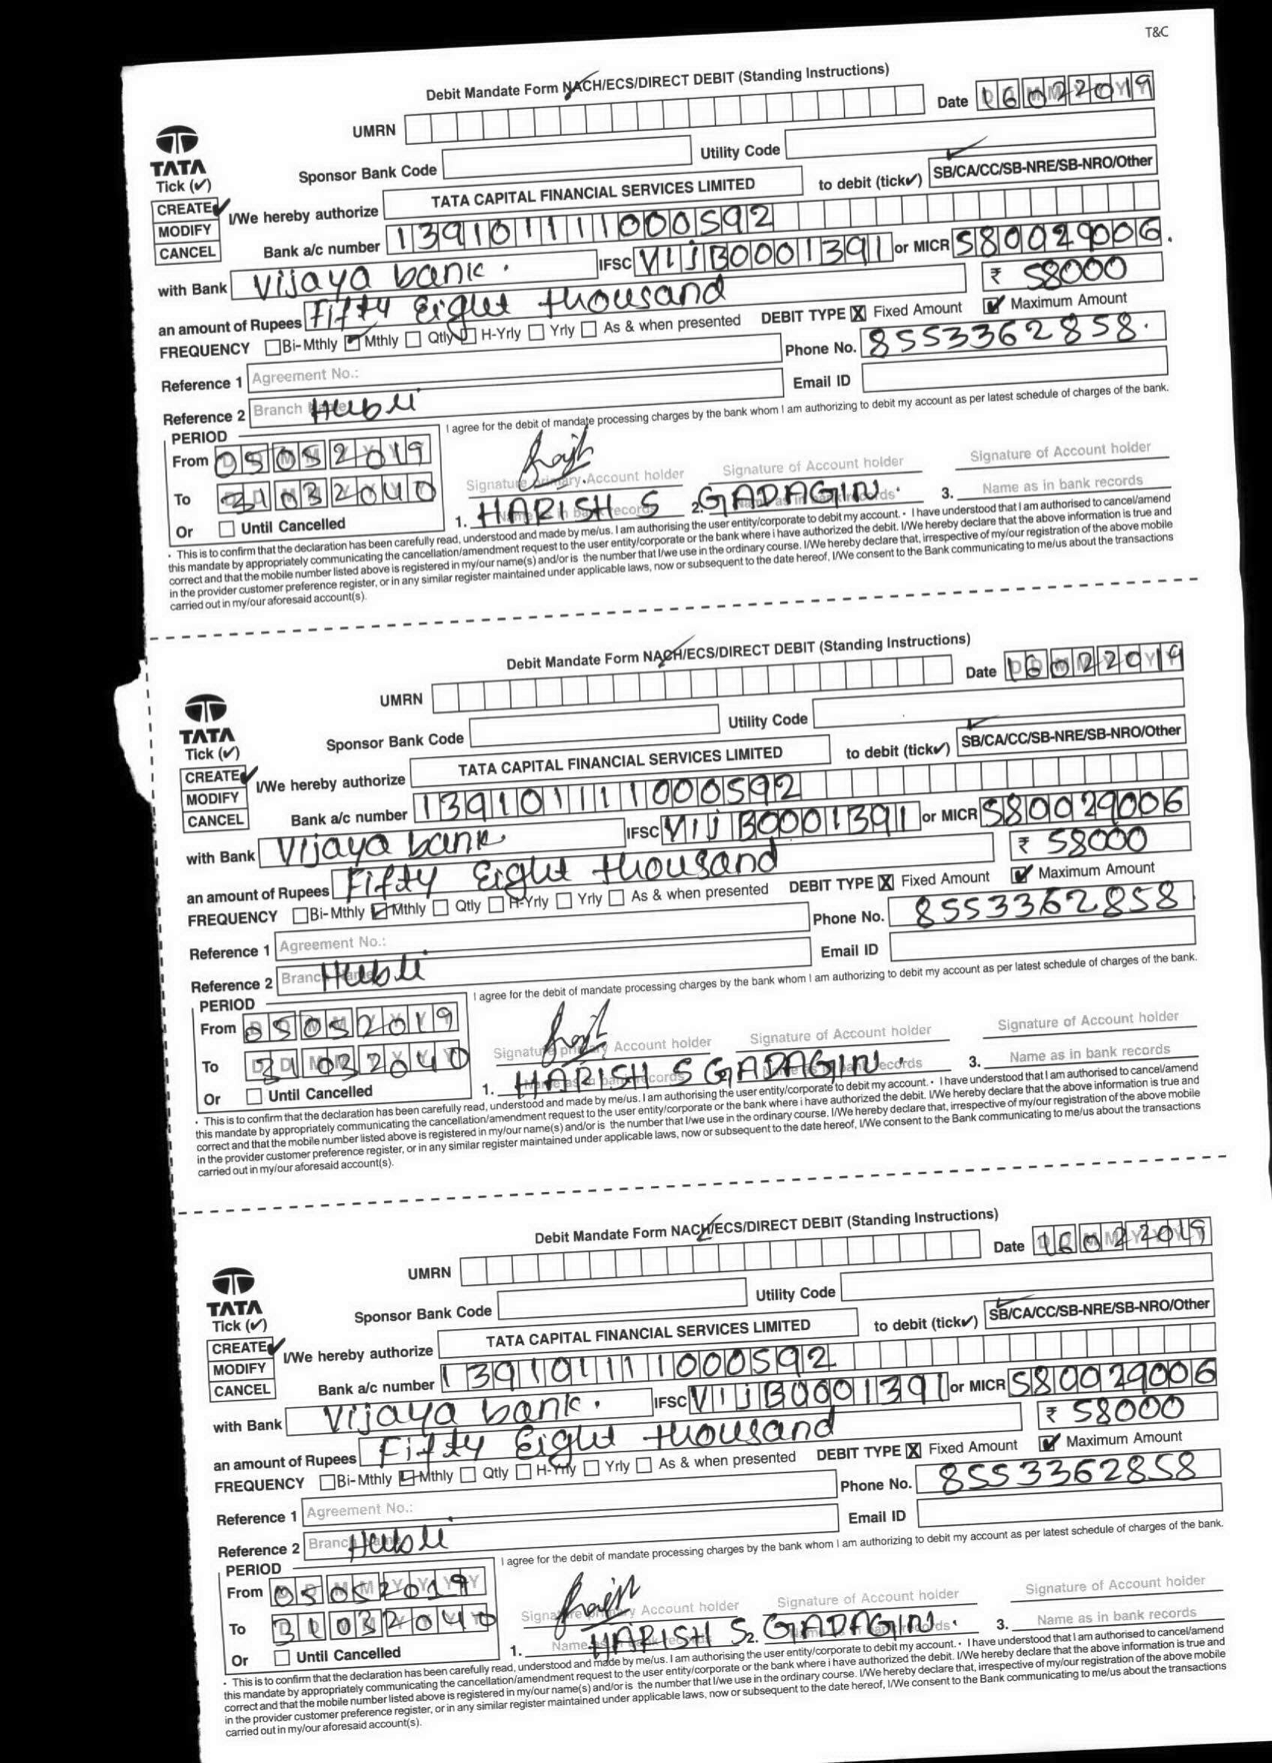 T&C
Debit Mandate Form NACH/ECS/DIRECT DEBIT (Standing Instructions)
UMRN Date 16022019
TATA
Sponsor Bank Code Utility Code
Tick (✓)
CREATE ✓ I/We hereby authorize TATA CAPITAL FINANCIAL SERVICES LIMITED to debit (tick✓) SB/CA/CC/SB-NRE/SB-NRO/Other
MODIFY
CANCEL Bank a/c number 139101111000592
with Bank Vijaya bank. IFSC VIJB0001391 or MICR 580029006.
an amount of Rupees Fifty Eight thousand ₹ 58000
FREQUENCY Bi-Mthly Mthly Qtly H-Yrly Yrly As & when presented DEBIT TYPE X Fixed Amount ✓ Maximum Amount
Reference 1 Agreement No.: Phone No. 8553362858.
Reference 2 Branch Name Hubli Email ID
PERIOD I agree for the debit of mandate processing charges by the bank whom I am authorizing to debit my account as per latest schedule of charges of the bank.
From 05052019
Signature primary Account holder Signature of Account holder Signature of Account holder
To 31032040
1. HARISH S 2. GADAGIN. 3. Name as in bank records
Or Until Cancelled
• This is to confirm that the declaration has been carefully read, understood and made by me/us. I am authorising the user entity/corporate to debit my account. • I have understood that I am authorised to cancel/amend
this mandate by appropriately communicating the cancellation/amendment request to the user entity/corporate or the bank where i have authorized the debit. I/We hereby declare that the above information is true and
correct and that the mobile number listed above is registered in my/our name(s) and/or is the number that I/we use in the ordinary course. I/We hereby declare that, irrespective of my/our registration of the above mobile
in the provider customer preference register, or in any similar register maintained under applicable laws, now or subsequent to the date hereof, I/We consent to the Bank communicating to me/us about the transactions
carried out in my/our aforesaid account(s).
Debit Mandate Form NACH/ECS/DIRECT DEBIT (Standing Instructions)
UMRN Date 16022019
TATA
Sponsor Bank Code Utility Code
Tick (✓)
CREATE ✓ I/We hereby authorize TATA CAPITAL FINANCIAL SERVICES LIMITED to debit (tick✓) SB/CA/CC/SB-NRE/SB-NRO/Other
MODIFY
CANCEL Bank a/c number 139101111000592
with Bank Vijaya bank. IFSC VIJB0001391 or MICR 580029006
an amount of Rupees Fifty Eight thousand ₹ 58000
FREQUENCY Bi-Mthly Mthly Qtly H-Yrly Yrly As & when presented DEBIT TYPE X Fixed Amount ✓ Maximum Amount
Reference 1 Agreement No.: Phone No. 8553362858
Reference 2 Branch Name Hubli Email ID
PERIOD I agree for the debit of mandate processing charges by the bank whom I am authorizing to debit my account as per latest schedule of charges of the bank.
From 05052019
Signature primary Account holder Signature of Account holder Signature of Account holder
To 31032040
1. HARISH S GADAGIN. 3. Name as in bank records
Or Until Cancelled
• This is to confirm that the declaration has been carefully read, understood and made by me/us. I am authorising the user entity/corporate to debit my account. • I have understood that I am authorised to cancel/amend
this mandate by appropriately communicating the cancellation/amendment request to the user entity/corporate or the bank where i have authorized the debit. I/We hereby declare that the above information is true and
correct and that the mobile number listed above is registered in my/our name(s) and/or is the number that I/we use in the ordinary course. I/We hereby declare that, irrespective of my/our registration of the above mobile
in the provider customer preference register, or in any similar register maintained under applicable laws, now or subsequent to the date hereof, I/We consent to the Bank communicating to me/us about the transactions
carried out in my/our aforesaid account(s).
Debit Mandate Form NACH/ECS/DIRECT DEBIT (Standing Instructions)
UMRN Date 16022019
TATA
Sponsor Bank Code Utility Code
Tick (✓)
CREATE ✓ I/We hereby authorize TATA CAPITAL FINANCIAL SERVICES LIMITED to debit (tick✓) SB/CA/CC/SB-NRE/SB-NRO/Other
MODIFY
CANCEL Bank a/c number 139101111000592
with Bank Vijaya bank. IFSC VIJB0001391 or MICR 580029006
an amount of Rupees Fifty Eight thousand ₹ 58000
FREQUENCY Bi-Mthly Mthly Qtly H-Yrly Yrly As & when presented DEBIT TYPE X Fixed Amount ✓ Maximum Amount
Reference 1 Agreement No.: Phone No. 8553362858
Reference 2 Branch Name Hubli Email ID
PERIOD I agree for the debit of mandate processing charges by the bank whom I am authorizing to debit my account as per latest schedule of charges of the bank.
From 05052019
Signature primary Account holder Signature of Account holder Signature of Account holder
To 31032040
1. HARISH S 2. GADAGIN. 3. Name as in bank records
Or Until Cancelled
• This is to confirm that the declaration has been carefully read, understood and made by me/us. I am authorising the user entity/corporate to debit my account. • I have understood that I am authorised to cancel/amend
this mandate by appropriately communicating the cancellation/amendment request to the user entity/corporate or the bank where i have authorized the debit. I/We hereby declare that the above information is true and
correct and that the mobile number listed above is registered in my/our name(s) and/or is the number that I/we use in the ordinary course. I/We hereby declare that, irrespective of my/our registration of the above mobile
in the provider customer preference register, or in any similar register maintained under applicable laws, now or subsequent to the date hereof, I/We consent to the Bank communicating to me/us about the transactions
carried out in my/our aforesaid account(s).